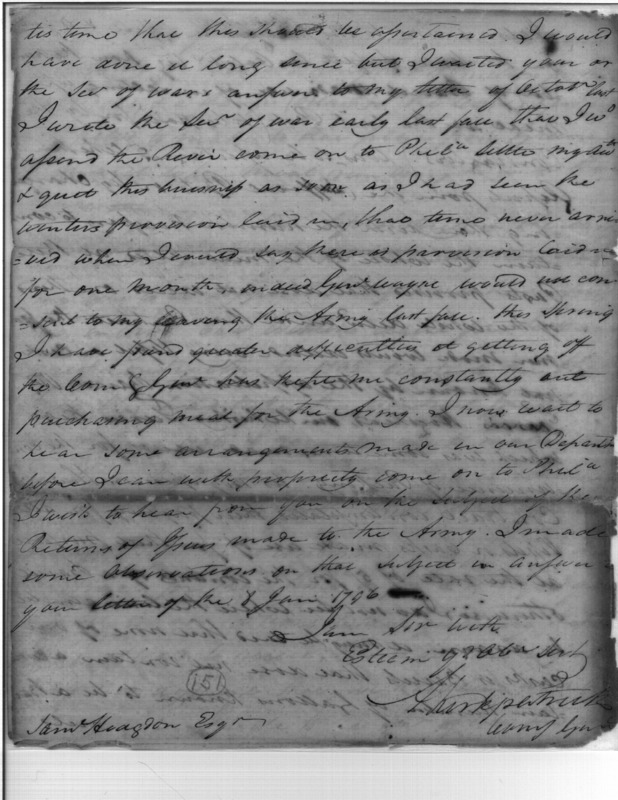 tis time that this should be assertained. I would
have done it long since but I waited your or
the Secy of wars answer to my letter of Octobr last
I wrote the Secy of war early last fall that I wd
assend the River come on to Phila settle my
& quit this business as soon as I had seen the
winters provision laid in, that time never arri
=ved when I could say there is provision laid in
for one month, indeed Genl Wayne would not con
=sent to my leaving the Army last fall. this Spring
I have found greater difficulties at getting off
the Com G Genl has kept me constantly out
purchasing meat for the Army. I now wait to
hear some arrangements made in our Departt
before I can with propriety come on to Phila
I wish to hear from you on the subject of the
Returns of Issues made to the Army. I made
some observations on that subject in answer
your letter of the 8 Jany 1796
I am Sir with
Esteem yr Obt Sert
Kirkpatrick
Comy Genl
151
Saml Hodgdon Esqr